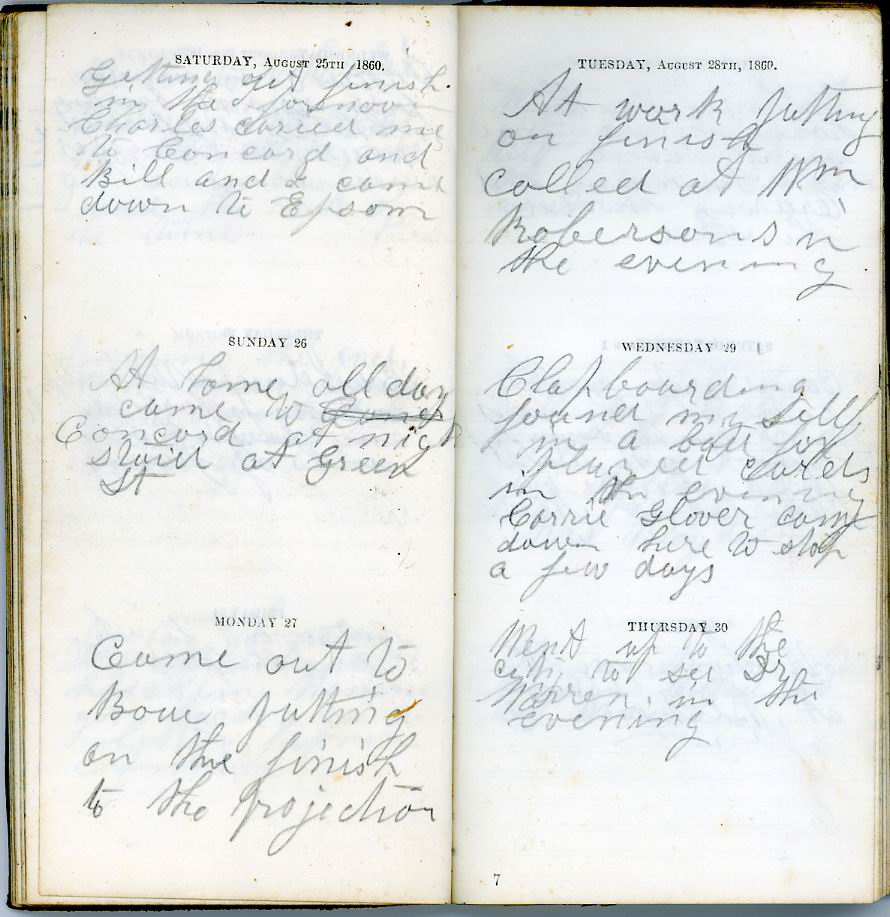 SATURDAY, AUGUST 25TH 1860.
Getting out finish
in the fornoon
Charles caried me
to Concord and
Bill and I came
down to Epsom
SUNDAY 26
At home all day
came to
Concord at nigh
staid at Green
St
MONDAY 27
Came out to
Bow putting
on the finish
to the projection
TUESDAY, AUGUST 28TH, 1860.
At work putting
on finish
called at Wm
Robersons n
the evening
WEDNESDAY 29
Clapboarding
found my self
in a
cards
in the evening
Carrie Glover came
down here to stop
a few days
THURSDAY 30
Went up to the
city to see Dr
Warren in the
evening
7